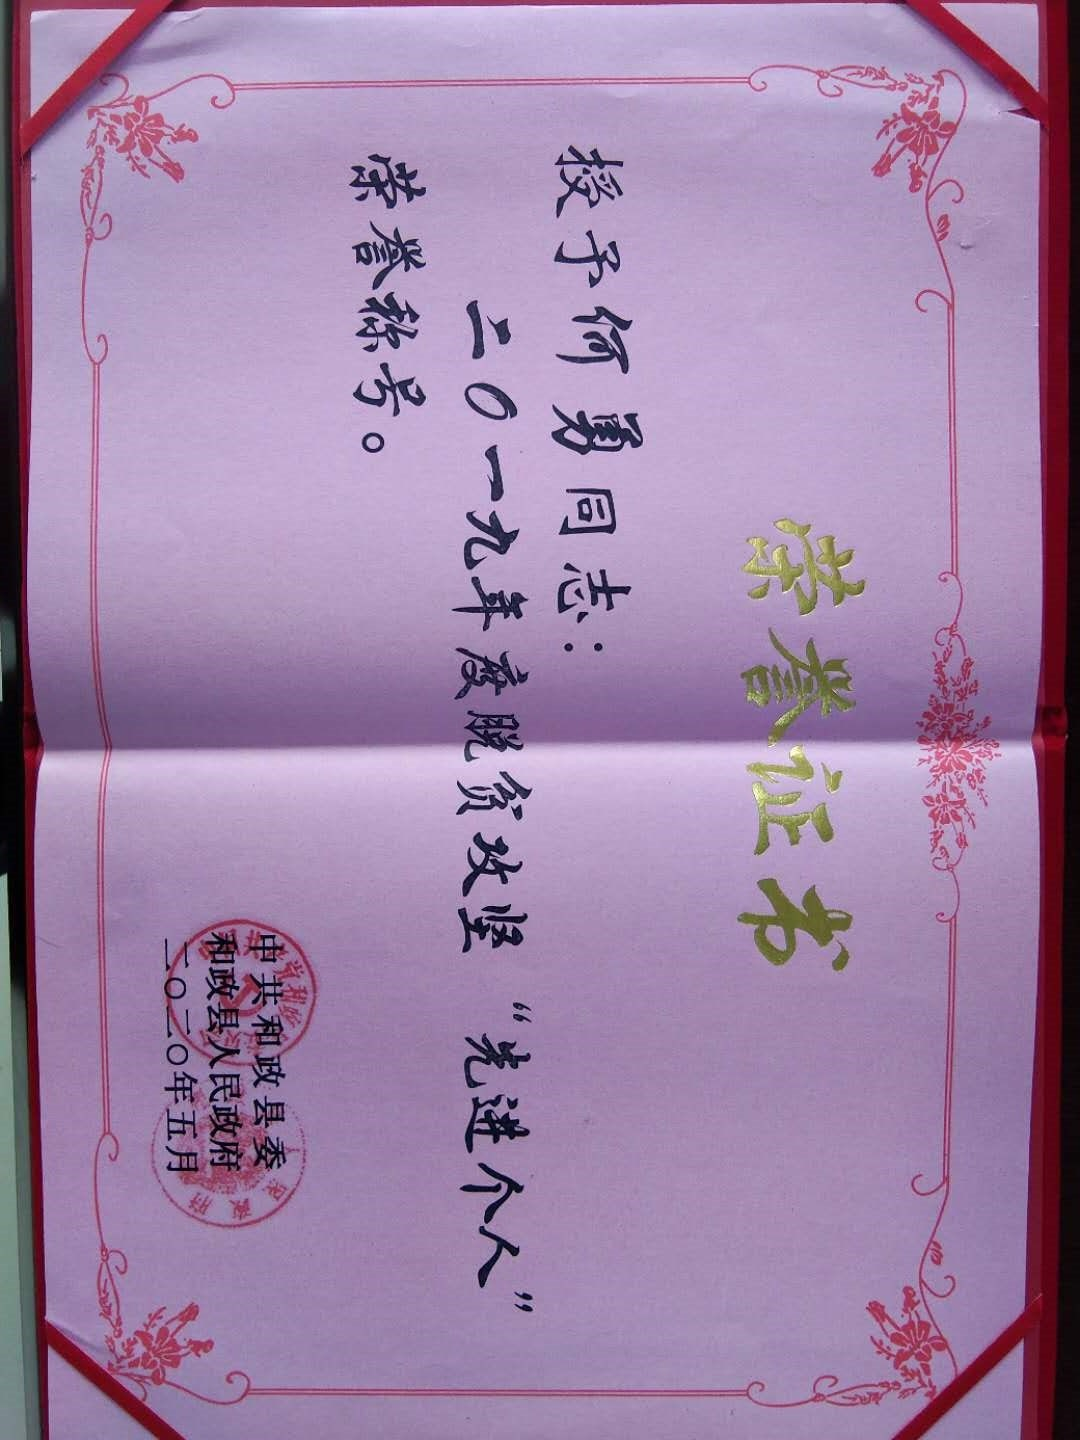 荣誉证书
授予何勇同志：
二〇一九年度脱贫攻坚“先进个人”
荣誉称号。
中共和政县委
和政县人民政府
二〇二〇年五月